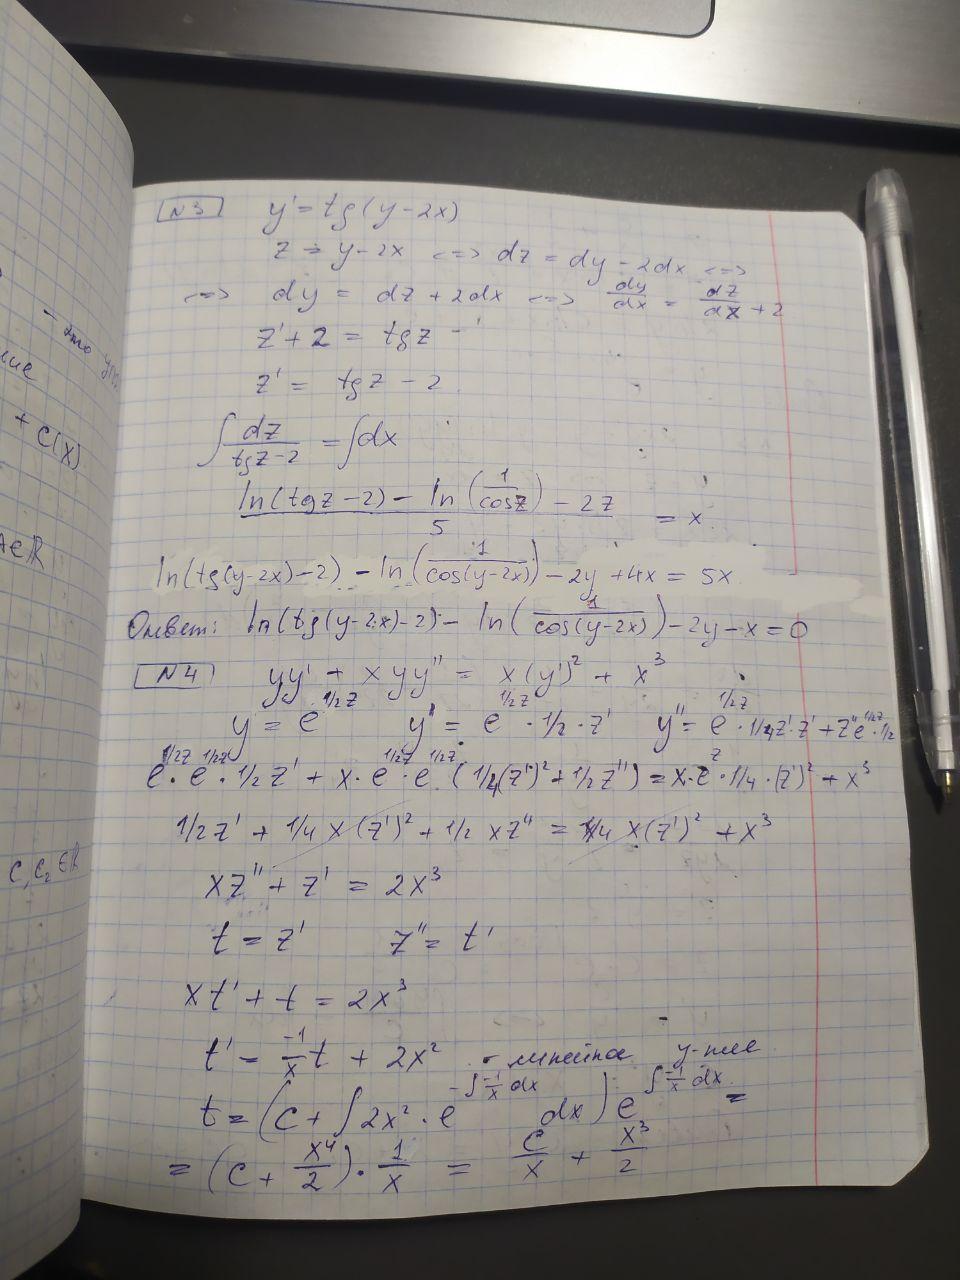 - это
ние
+ C(x)
A∈ℝ
C, C₂ ∈ ℝ
N3 y' = tg(y-2x)
z = y-2x <=> dz = dy - 2dx <=>
<=> dy = dz + 2dx <=> dy/dx = dz/dx + 2
z' + 2 = tgz
z' = tgz - 2
∫ dz/(tgz-2) = ∫dx
(ln(tgz-2) - ln(1/cosz) - 2z)/5 = x
ln(tg(y-2x)-2) - ln(1/cos(y-2x)) - 2y + 4x = 5x
Ответ: ln(tg(y-2x)-2) - ln(1/cos(y-2x)) - 2y - x = 0
N4 yy' + xyy'' = x(y')² + x³
y = e^(1/2z) y' = e^(1/2z) · 1/2 · z' y'' = e^(1/2z) · 1/4z' · z' + z''e^(1/2z) · 1/2
e^(1/2z) · e^(1/2z) · 1/2 z' + x · e^(1/2z) · e^(1/2z) (1/4(z')² + 1/2z'') = x · e^z · 1/4 · (z')² + x³
1/2z' + 1/4 x(z')² + 1/2 xz'' = 1/4 x(z')² + x³
xz'' + z' = 2x³
t = z' z'' = t'
xt' + t = 2x³
t' - -1/x t + 2x² - линейное у-ние
t = (C + ∫2x² · e^(-∫-1/x dx) dx) e^(∫-1/x dx) =
= (C + x⁴/2) · 1/x = C/x + x³/2